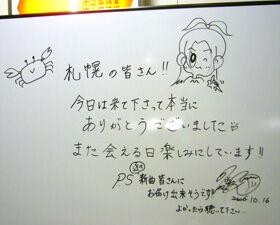 札幌の皆さん!!
今日は来て下さって本当に
ありがとうございました
また会える日楽しみにしています!!
PS 新曲皆さんに
お届け出来そうです
よかったら聴いて下さい
10.16